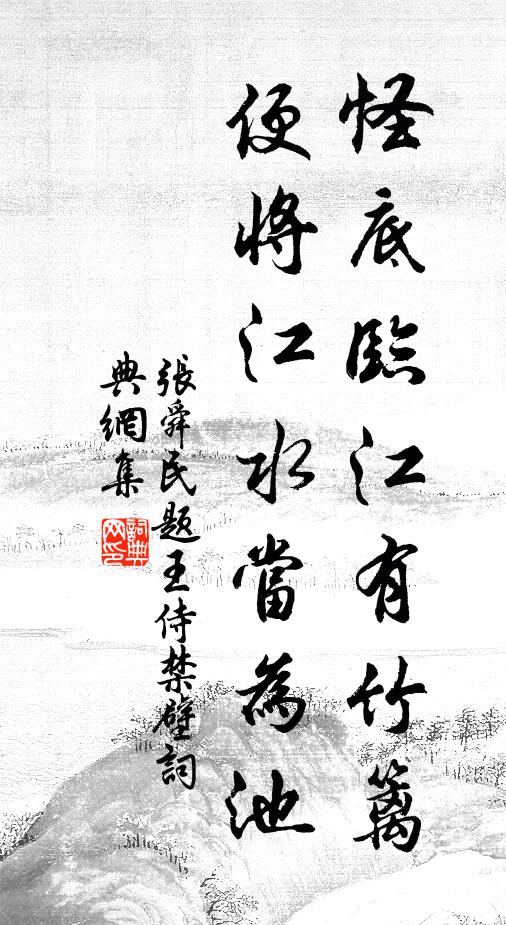 怪底臨江有竹籬
便將江水當為池
張舜民题王侍禁壁詞
典網集
詞典网印